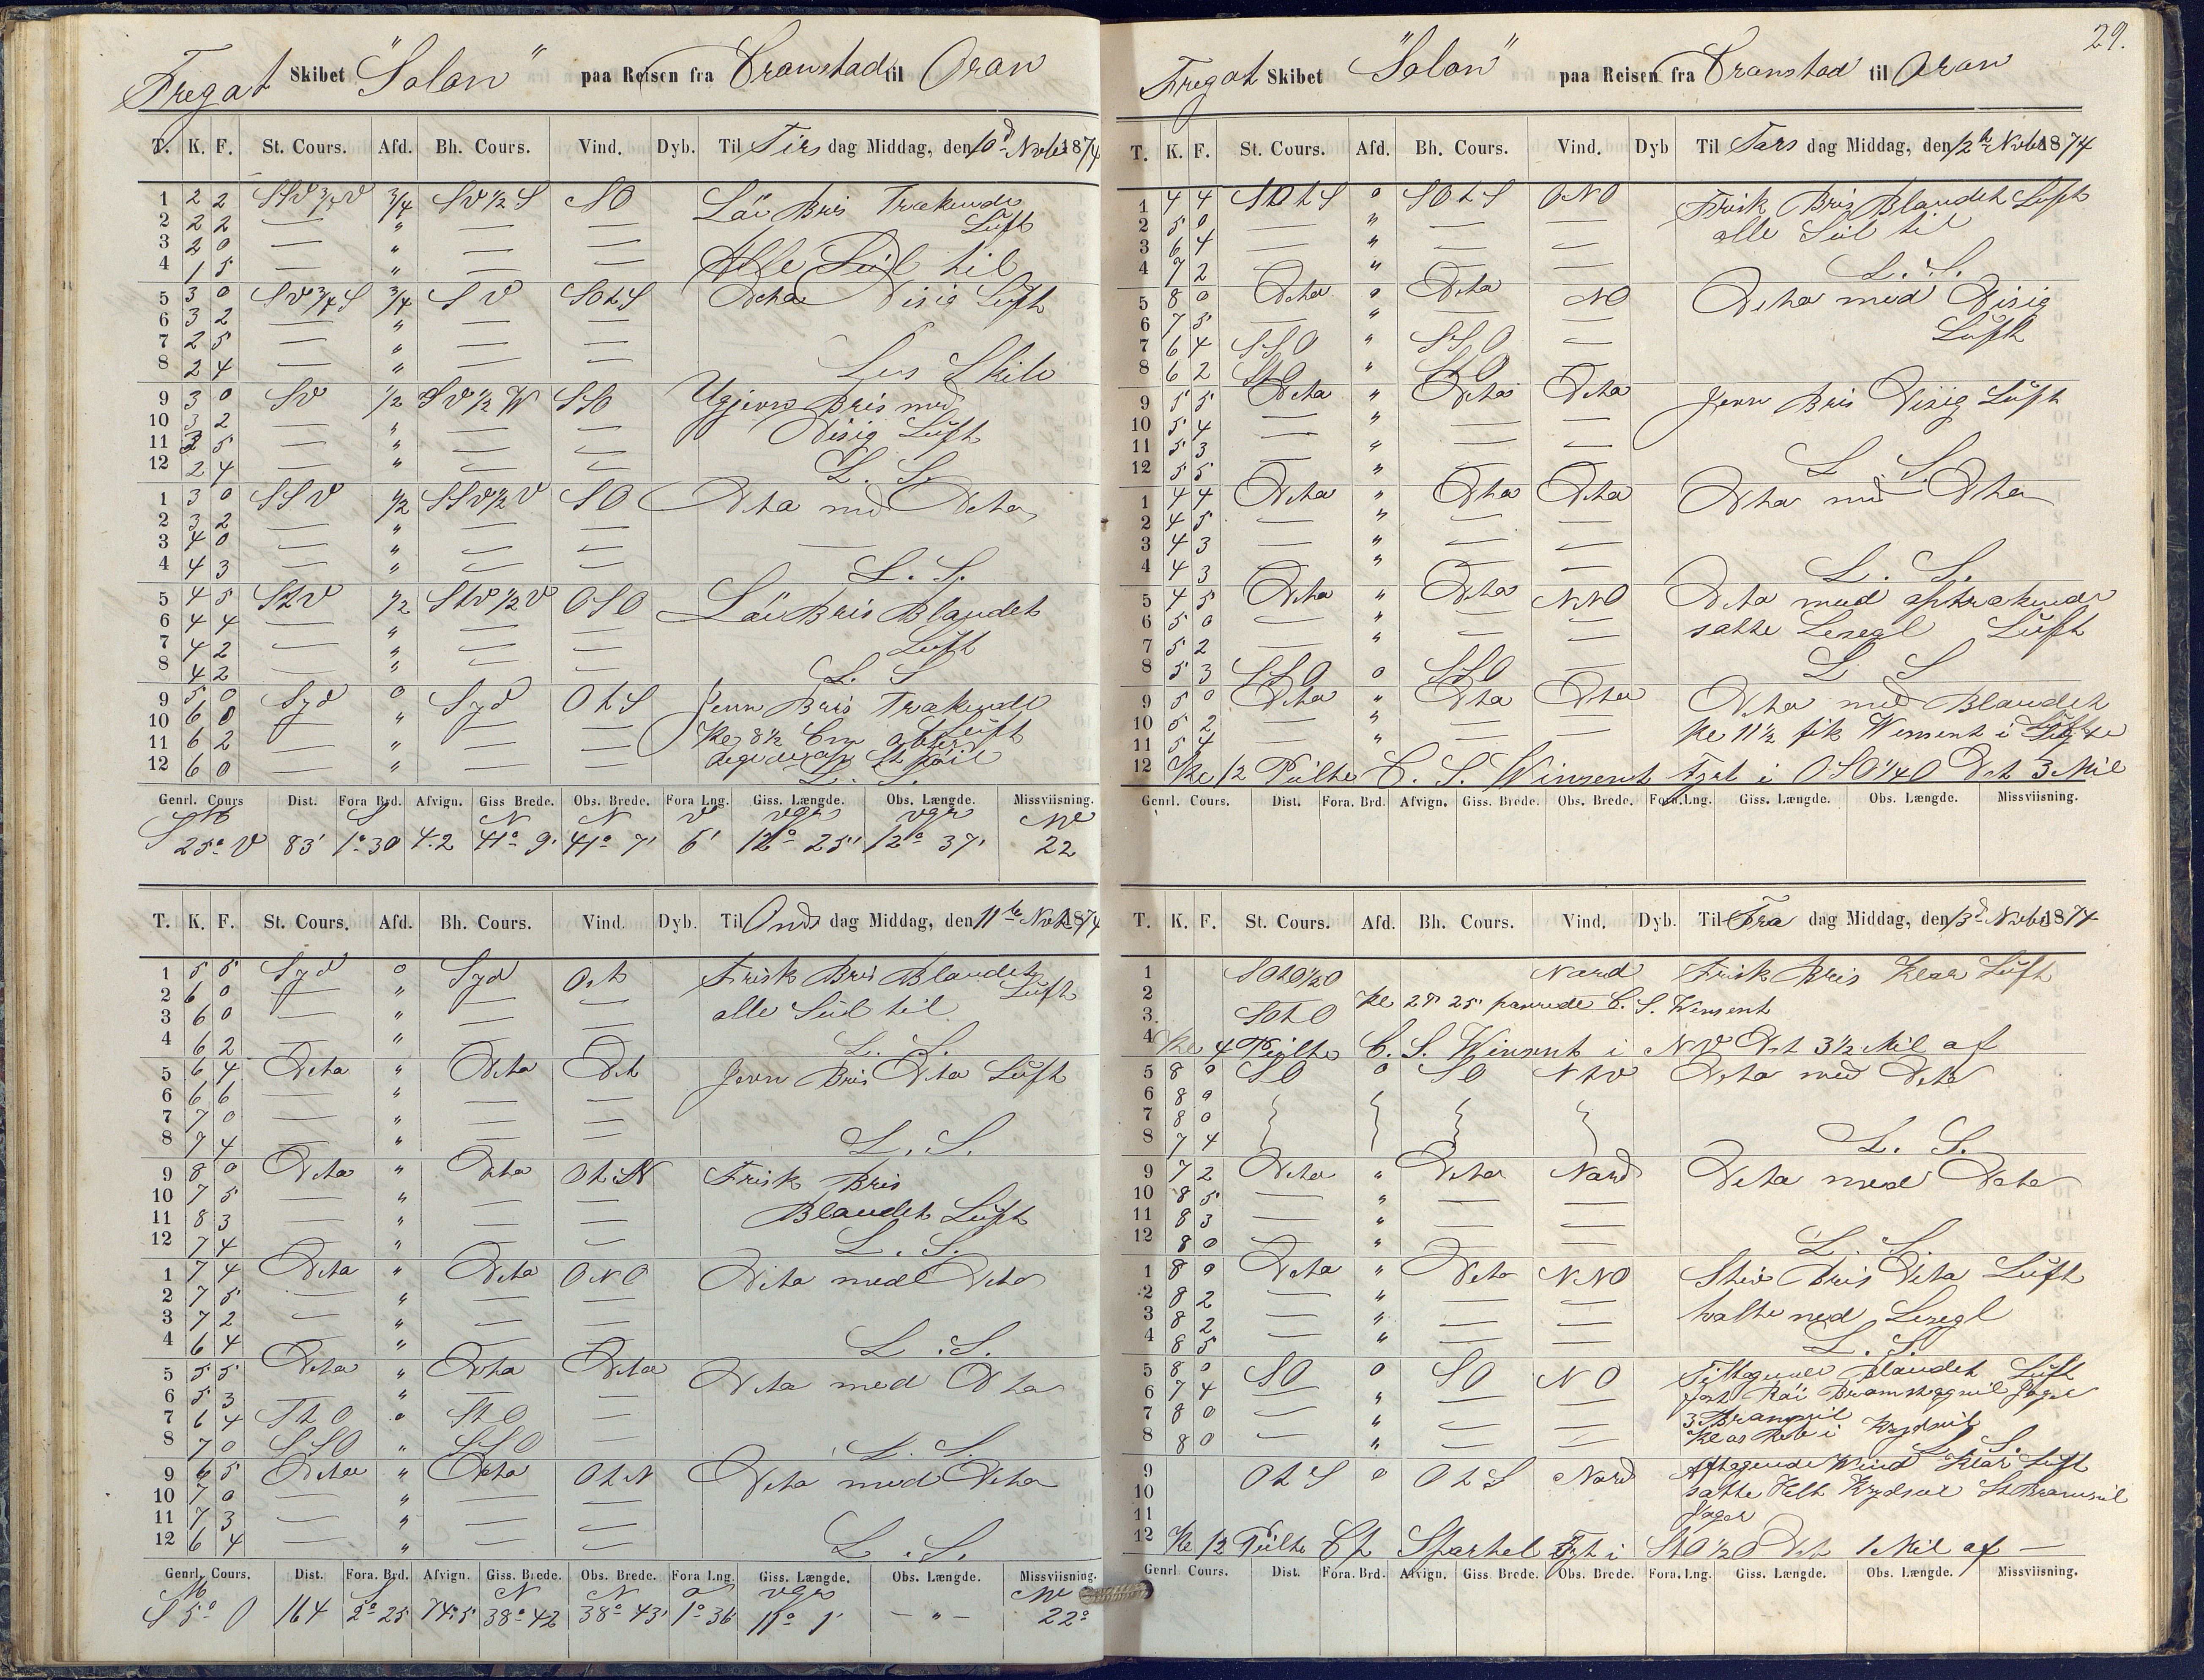 Fregat Skibet "Solon" paa Reisen fra Cronstadt til Oran
T. K. F. St. Cours. Afd. Bh. Cours. Vind. Dyb. Til Tirs dag Middag, den 10d Novbr 1874
1 2 2 SSV 3/4 V 3/4 SV 1/2 S SO Lår Bris Trakende
2 2 2 — " — — Luft
3 2 0 — " — —
4 1 5 — " — — Alle Seil til
5 3 0 SV 3/4 S 3/4 SV SOtS Deto Disig Luft
6 3 2 — " — —
7 2 5 — " — —
8 2 4 — " — — Lens Skib
9 3 0 SV 1/2 SV 1/2 W SSO Ugjevn Bris med
10 3 2 — " — — Disig Luft
11 2 5 — " — —
12 2 4 — " — — L. S.
1 3 0 SSV 1/2 SSV 1/2 V SO Deto med Deto
2 3 2 — " — —
3 4 0 — " — —
4 4 3 — " — — L. S.
5 4 5 StV 1/2 StV 1/2 V OSO Lår Bris Blandet
6 4 4 — " — —
7 4 2 — " — — Luft
8 4 2 — " — — L. S
9 5 0 Syd 0 Syd OtS Jevn Bris Trakende
10 6 0 — " — — Luft
11 6 2 — " — — Kl 8 1/2
12 6 0 — " — — L. S.
Genrl. Cours Dist. Fora Brd. Afvign. Giss Brede. Obs. Brede. Fora Lng. Giss. Længde. Obs. Længde. Missviisning.
M S N N V Vgr Vgr NV
S 25° V 83' 1° 30 42 41° 9' 41° 7' 6' 12° 25' 12° 37' 22
T. K. F. St. Cours. Afd. Bh. Cours. Vind. Dyb. Til Ons dag Middag, den 11te Novbr 1874
1 5 5 Syd 0 Syd Ost Frisk Bris Blandet
2 6 0 — " — — Luft
3 6 0 — " — — alle Seil til
4 6 2 — " — — L. S.
5 6 4 Deto " Deto Dt Jevn Bris Deto Luft
6 6 6 — " — —
7 7 0 — " — —
8 7 4 — " — — L. S.
9 8 0 Deto " Deto OtN Frisk Bris
10 7 5 — " — —
11 8 3 — " — — Blandet Luft
12 7 4 — " — — L. S.
1 7 4 Deto " Deto ONO Deto med Deto
2 7 5 — " — —
3 7 2 — " — —
4 6 4 — " — — L. S.
5 5 5 Deto " Deto Deto Deto med Deto
6 5 3 — " — —
7 6 4 StO " StO —
8 7 0 SSO " SSO — L. S.
9 6 5 Deto " Deto OtN Deto med Deto
10 7 0 — " — —
11 7 3 — " — —
12 6 4 — " — — L. S.
Genrl. Cours. Dist. Fora. Brd. Afvign. Giss Brede. Obs. Brede. Fora Lng. Giss. Længde. Obs. Længde. Missviisning.
M S N N O Vgr NV
S 5° O 164 2° 25 74.5 38° 42 38° 43' 1° 36 11° 1' — " — 22°
29.
Fregat Skibet "Solon" paa Reisen fra Cronstad til Oran
T. K. F. St. Cours. Afd. Bh. Cours. Vind. Dyb Til Tors dag Middag, den 12te Novbr 1874
1 4 4 SOtS 0 SOtS ONO Frisk Bris Blandet Luft
2 5 0 — " — — alle Seil til
3 6 4 — " — —
4 7 2 — " — — L. S.
5 8 0 Deto 0 Deto NO Deto med Disig
6 7 5 — " — —
7 6 4 SSO " SSO — Luft
8 6 2 StO " StO
9 5 5 Deto " Deto Deto Jevn Bris Disig Luft
10 5 4 — " — —
11 5 3 — " — —
12 5 5 — " — — L. S.
1 4 4 Deto " Dto Deto Dto med Dto
2 4 5 — " — —
3 4 3 — " — —
4 4 3 — " — — L. S.
5 4 5 Deto " Deto NNO Deto med optrakende
6 5 0 — " — — satte Lesegl Luft
7 5 2 — " — —
8 5 3 SSO 0 SSO — L. S
9 5 0 Deto " Dto Dto Deto med Blandet
10 5 2 — " — — Luft
11 5 4 — " — — Kl 11 1/2 fik Winsent i Sigte
12 Kl 12 Peilte C. S. Winsent Fyrt i OSO 1/4 O Dst 3 Mil
Genrl. Cours. Dist. Fora. Brd. Afvign. Giss Brede. Obs. Brede. Fora. Lng. Giss. Længde. Obs. Længde. Missviisning.
T. K. F. St. Cours. Afd. Bh. Cours. Vind. Dyb. Til Fre dag Middag, den 13d Novbr 1874
1 SOtO 1/2 O Nord Frisk Bris Klar Luft
2 Kl 2 25' passerede C. S. Winsent
3 SOtO
4 Kl 4 Peilte C. S. Winsent i NV Dst 3 1/2 Mil af
5 8 0 SO 0 SO NtV Deto med Deto
6 8 0
7 8 0
8 7 4 L. S.
9 7 2 Deto " Deto Nord Deto med Deto
10 8 5 — " — —
11 8 3 — " — —
12 8 0 — " — — L. S.
1 8 0 Deto " Deto NNO Stiv Bris Deto Luft
2 8 2 — " — —
3 8 2 — " — — halte ned Lesegl
4 8 5 — " — — L. S.
5 8 0 SO 0 SO NO Tiltagende Blandet Luft
6 7 4 — " — — Jager
7 8 0 — " — — 3 Bramseil
8 8 0 — " — — Kl Reb i Krydseil L. S.
9 OtS 0 OtS Nord Aftagende Wind Klar Luft
10 satte Helt Krydseil St Bramseil
11 Jager
12 Kl 12 Peilte Cp Spartel Fyrt i StO 1/2 O Dst 1 Mil af —
Genrl. Cours. Dist. Fora. Brd. Afvign. Giss Brede. Obs. Brede. Fora. Lng. Giss. Længde. Obs. Længde. Missviisning.